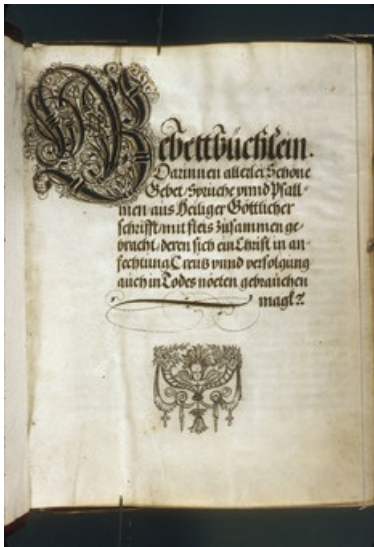 Gebettbüchlein.
Darinnen allerlei Schöne
Gebet, Sprüche vnnd Psall-
men aus Heiliger Göttlicher
schrifft, mit fleis zusamen ge-
bracht, deren sich ein Christ in an-
fechtung Creutz vnnd verfolgung
auch in Todes nöeten gebrauchen
magk